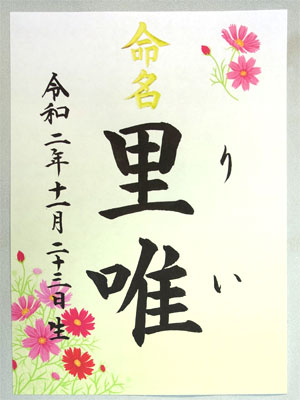 命名
りい
里唯
令和二年十一月二十三日生